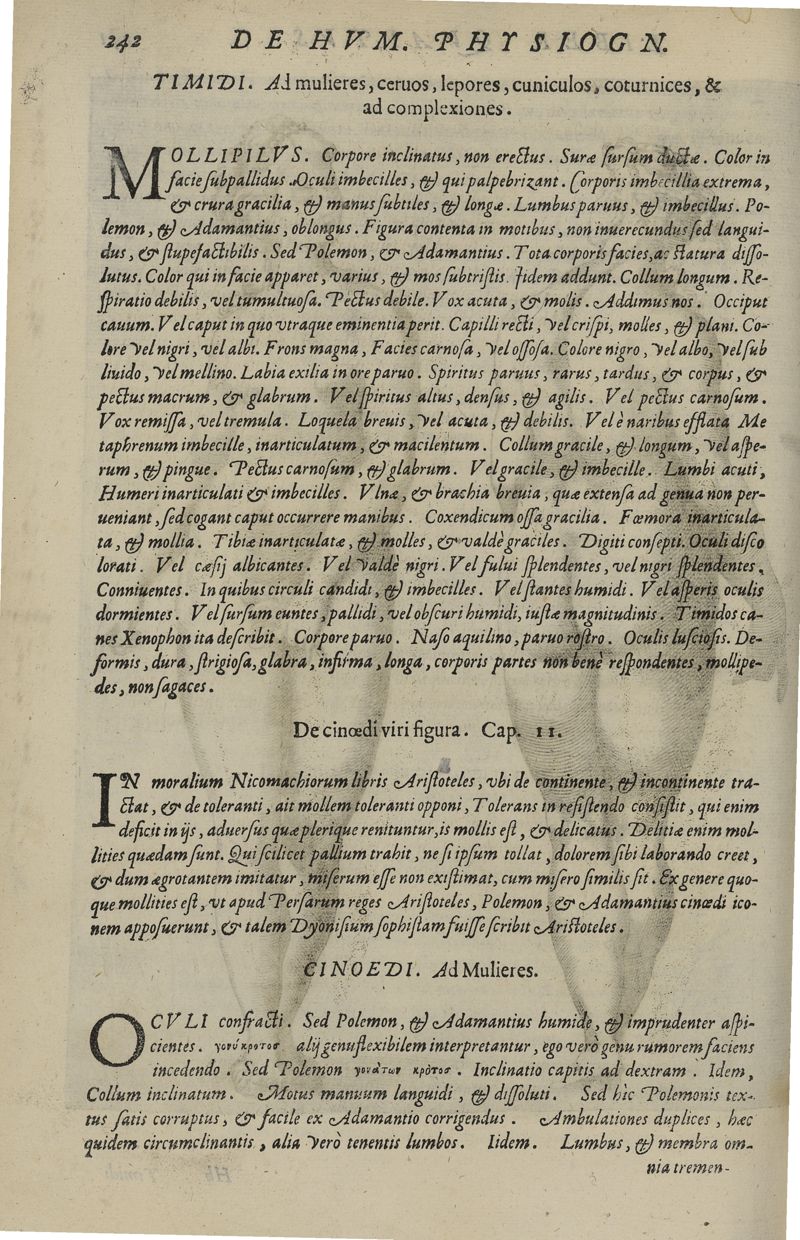 242 DE HVM. PHYSIOGN.
TIMIDI. Ad mulieres, ceruos, lepores, cuniculos, coturnices, &
ad complexiones.
MOLLIPILVS. Corpore inclinatus, non erectus. Suræ sursum ductæ. Color in
facie subpallidus. Oculi imbecilles, & qui palpebrizant. Corporis imbecillia extrema,
& crura gracilia, & manus subtiles, & longæ. Lumbus paruus, & imbecillus. Po-
lemon, & Adamantius, oblongus. Figura contenta in motibus, non inuerecundus sed langui-
dus, & stupefactibilis. Sed Polemon, & Adamantius. Tota corporis facies, ac statura disso-
lutus. Color qui in facie apparet, varius, & mos subtristis. Iidem addunt. Collum longum. Re-
spiratio debilis, vel tumultuosa. Pectus debile. Vox acuta, & molis. Addimus nos. Occiput
cauum. Vel caput in quo vtraque eminentia perit. Capilli recti, vel crispi, molles, & plani. Co-
lore vel nigri, vel albi. Frons magna, Facies carnosa, vel ossosa. Colore nigro, vel albo, vel sub
liuido, vel mellino. Labia exilia in ore paruo. Spiritus paruus, rarus, tardus, & corpus, &
pectus macrum, & glabrum. Vel spiritus altus, densus, & agilis. Vel pectus carnosum.
Vox remissa, vel tremula. Loquela breuis, vel acuta, & debilis. Vel è naribus efflata Me
taphrenum imbecille, inarticulatum, & macilentum. Collum gracile, & longum, vel aspe-
rum, & pingue. Pectus carnosum, & glabrum. Vel gracile, & imbecille. Lumbi acuti,
Humeri inarticulati & imbecilles. Vlnæ, & brachia breuia, quæ extensa ad genua non per-
ueniant, sed cogant caput occurrere manibus. Coxendicum ossa gracilia. Fœmora inarticula-
ta, & mollia. Tibiæ inarticulatæ, & molles, & valdè graciles. Digiti consepti. Oculi disco
lorati. Vel cæsij albicantes. Vel valdè nigri. Vel fului splendentes, vel nigri splendentes,
Conniuentes. In quibus circuli candidi, & imbecilles. Vel stantes humidi. Vel asperis oculis
dormientes. Vel sursum euntes, pallidi, vel obscuri humidi, iustæ magnitudinis. Timidos ca-
nes Xenophon ita describit. Corpore paruo. Naso aquilino, paruo rostro. Oculis lusciosis. De-
formis, dura, strigiosa, glabra, infirma, longa, corporis partes non benè respondentes, mollipe-
des, non sagaces.
De cinœdi viri figura. Cap. 11.
IN moralium Nicomachiorum libris Aristoteles, vbi de continente, & incontinente tra-
ctat, & de toleranti, ait mollem toleranti opponi, Tolerans in resistendo consistit, qui enim
deficit in ijs, aduersus quæ plerique renituntur, is mollis est, & delicatus. Delitiæ enim mol-
lities quædam sunt. Qui scilicet pallium trahit, ne si ipsum tollat, dolorem sibi laborando creet,
& dum ægrotantem imitatur, miserum esse non existimat, cum misero similis sit. Ex genere quo-
que mollities est, vt apud Persarum reges Aristoteles, Polemon, & Adamantius cinœdi ico-
nem apposuerunt, & talem Dyonisium sophistam fuisse scribit Aristoteles.
CINOEDI. Ad Mulieres.
OCVLI confracti. Sed Polemon, & Adamantius humide, & imprudenter aspi-
cientes. γονύκροτοσ alij genuflexibilem interpretantur, ego verò genu rumorem faciens
incedendo. Sed Polemon γονάτων κρότοσ. Inclinatio capitis ad dextram. Idem,
Collum inclinatum. Motus manuum languidi, & dissoluti. Sed hìc Polemonis tex-
tus satis corruptus, & facile ex Adamantio corrigendus. Ambulationes duplices, hæc
quidem circumclinantis, alia verò tenentis lumbos. Iidem. Lumbus, & membra om-
nia tremen-